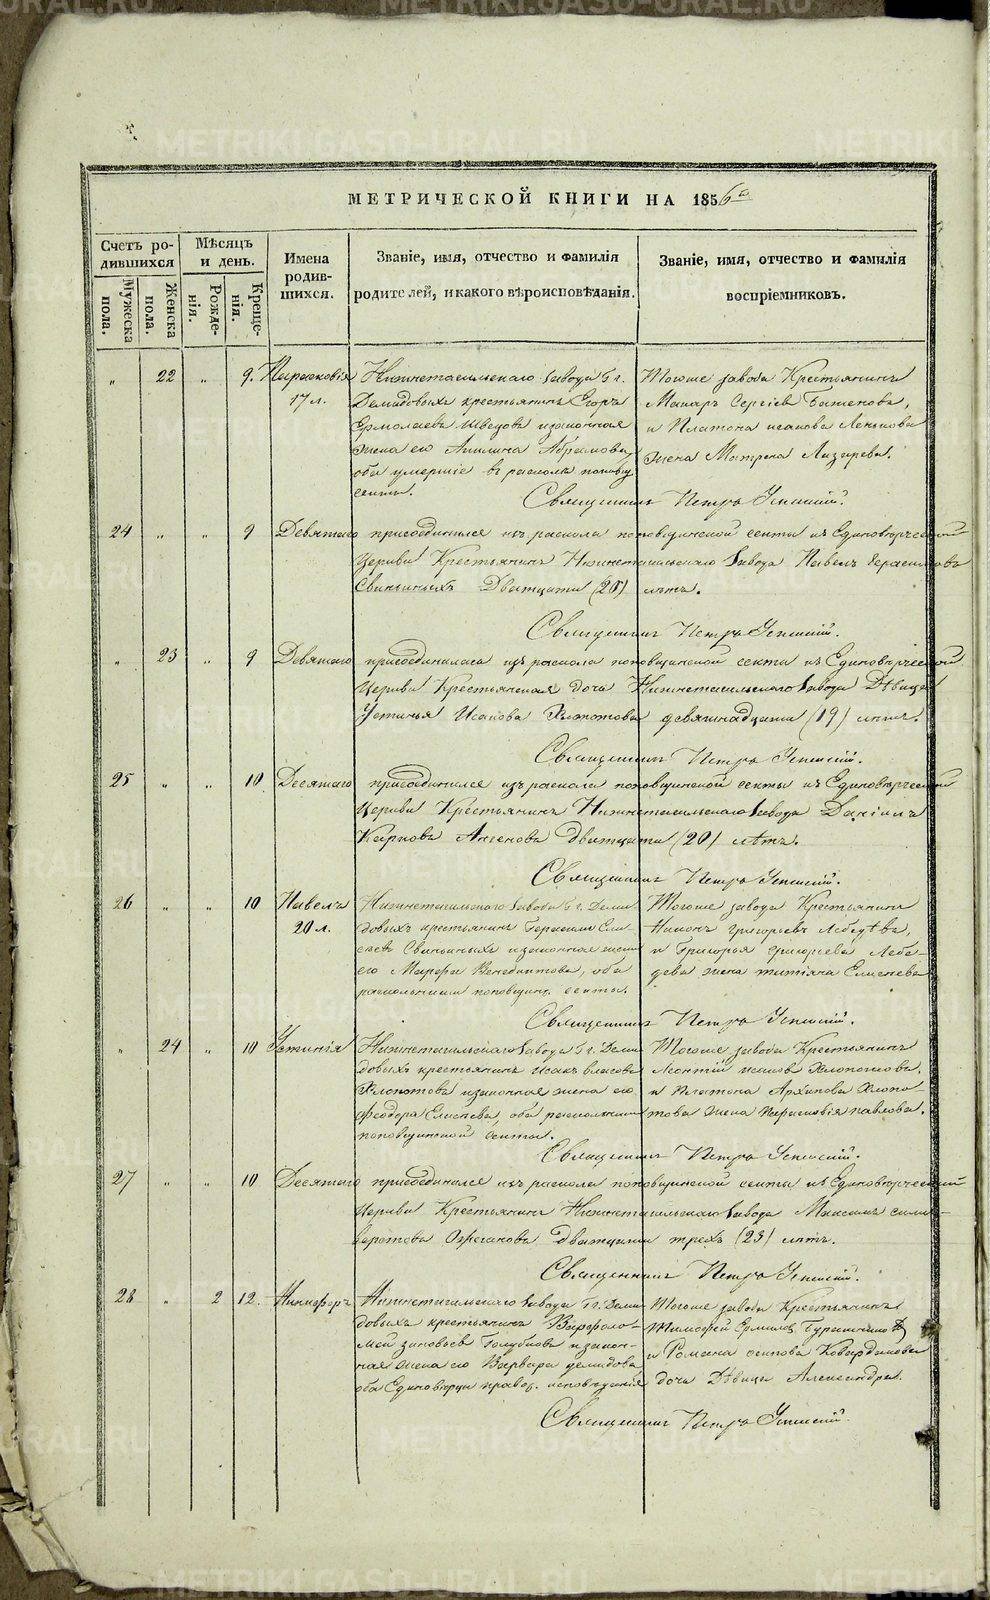 МЕТРИЧЕСКОЙ КНИГИ НА 1856 го
Счетъ ро-
дившихся
Мужеска пола.
Женска пола.
Мѣсяцъ
и день.
Рожде-
нія.
Креще-
нія.
Имена
родив-
шихся.
Званіе, имя, отчество и фамилія
родителей, и какого вѣроисповѣданія.
Званіе, имя, отчество и фамилія
воспріемниковъ.
" 22 " 9. Парасковія
17 л.
Нижнетагильскаго завода Гг.
Демидовыхъ крестьянинъ Егоръ
Ермолаевъ Швецовъ и законная
жена его Акилина Абрамова,
оба умершіе въ расколѣ поповщ.
секты.
Тогоже завода Крестьянинъ
Макаръ Сергіевъ Баженовъ,
и Платона исакова
жена Матрена Лазарева.
Священникъ Петръ Успенскій.
24 " " 9 Девятаго присоединился изъ раскола поповщинской секты къ Единовѣрческой
Церкви Крестьянинъ Нижнетагильскаго Завода Павелъ Герасимовъ
Свиньиныхъ Двадцати (20) лѣтъ.
Священникъ Петръ Успенскій.
" 23 " 9 Девятаго присоединилась изъ раскола поповщинской секты къ Единовѣрческой
Церкви Крестьянская дочь Нижнетагильскаго Завода Дѣвица
Устинья Исакова Хлопотова девятнадцати (19) лѣтъ.
Священникъ Петръ Успенскій.
25 " " 10 Десятаго присоединился изъ раскола поповщинской секты къ Единовѣрческой
Церкви Крестьянинъ Нижнетагильскаго Завода Даніилъ
Карповъ Аксеновъ двадцати (20) лѣтъ.
Священникъ Петръ Успенскій.
26 " " 10 Павелъ
20 л.
Нижнетагильскаго Завода Гг. Деми
довыхъ крестьянинъ Герасимъ Ели
сеевъ Свиньиныхъ и законная жена
его Марфа Венедиктова, оба
раскольники поповщин. секты.
Тогоже завода Крестьянинъ
Никонъ григорьевъ Лебедѣвъ,
и Григорья григорьева Лебе-
дева жена татіана Елисеева
Священникъ Петръ Успенскій.
" 24 " 10 Устинія
Нижнетагильскаго Завода Гг. Деми
довыхъ крестьянинъ Исакъ власовъ
Хлопотовъ и законная жена его
феодора Елисеева, оба раскольники
поповщинской секты.
Тогоже завода Крестьянинъ
Леонтій исаковъ Хлопотовъ,
и Платона Архипова Хлопо
това жена Параскевія павлова.
Священникъ Петръ Успенскій.
27 " " 10 Десятаго присоединился изъ раскола поповщинской секты къ Единовѣрческой
Церкви Крестьянинъ Нижнетагильскаго Завода Максимъ сили-
верстовъ Ожегановъ двадцати трехъ (23) лѣтъ.
Священникъ Петръ Успенскій.
28 " 2 12. Никифоръ
Нижнетагильскаго Завода Гг. Деми
довыхъ крестьянинъ Варфоло-
мей зиновьевъ Голубковъ и закон-
ная жена его Варвара демидова
оба Единовѣрцы правос. исповѣданія
Тогоже завода Крестьянинъ
Тимофей Ермиловъ
и Романа осипова Ковердякова
дочь Дѣвица Александра.
Священникъ Петръ Успенскій.
METRIKI.GASO-URAL.RU